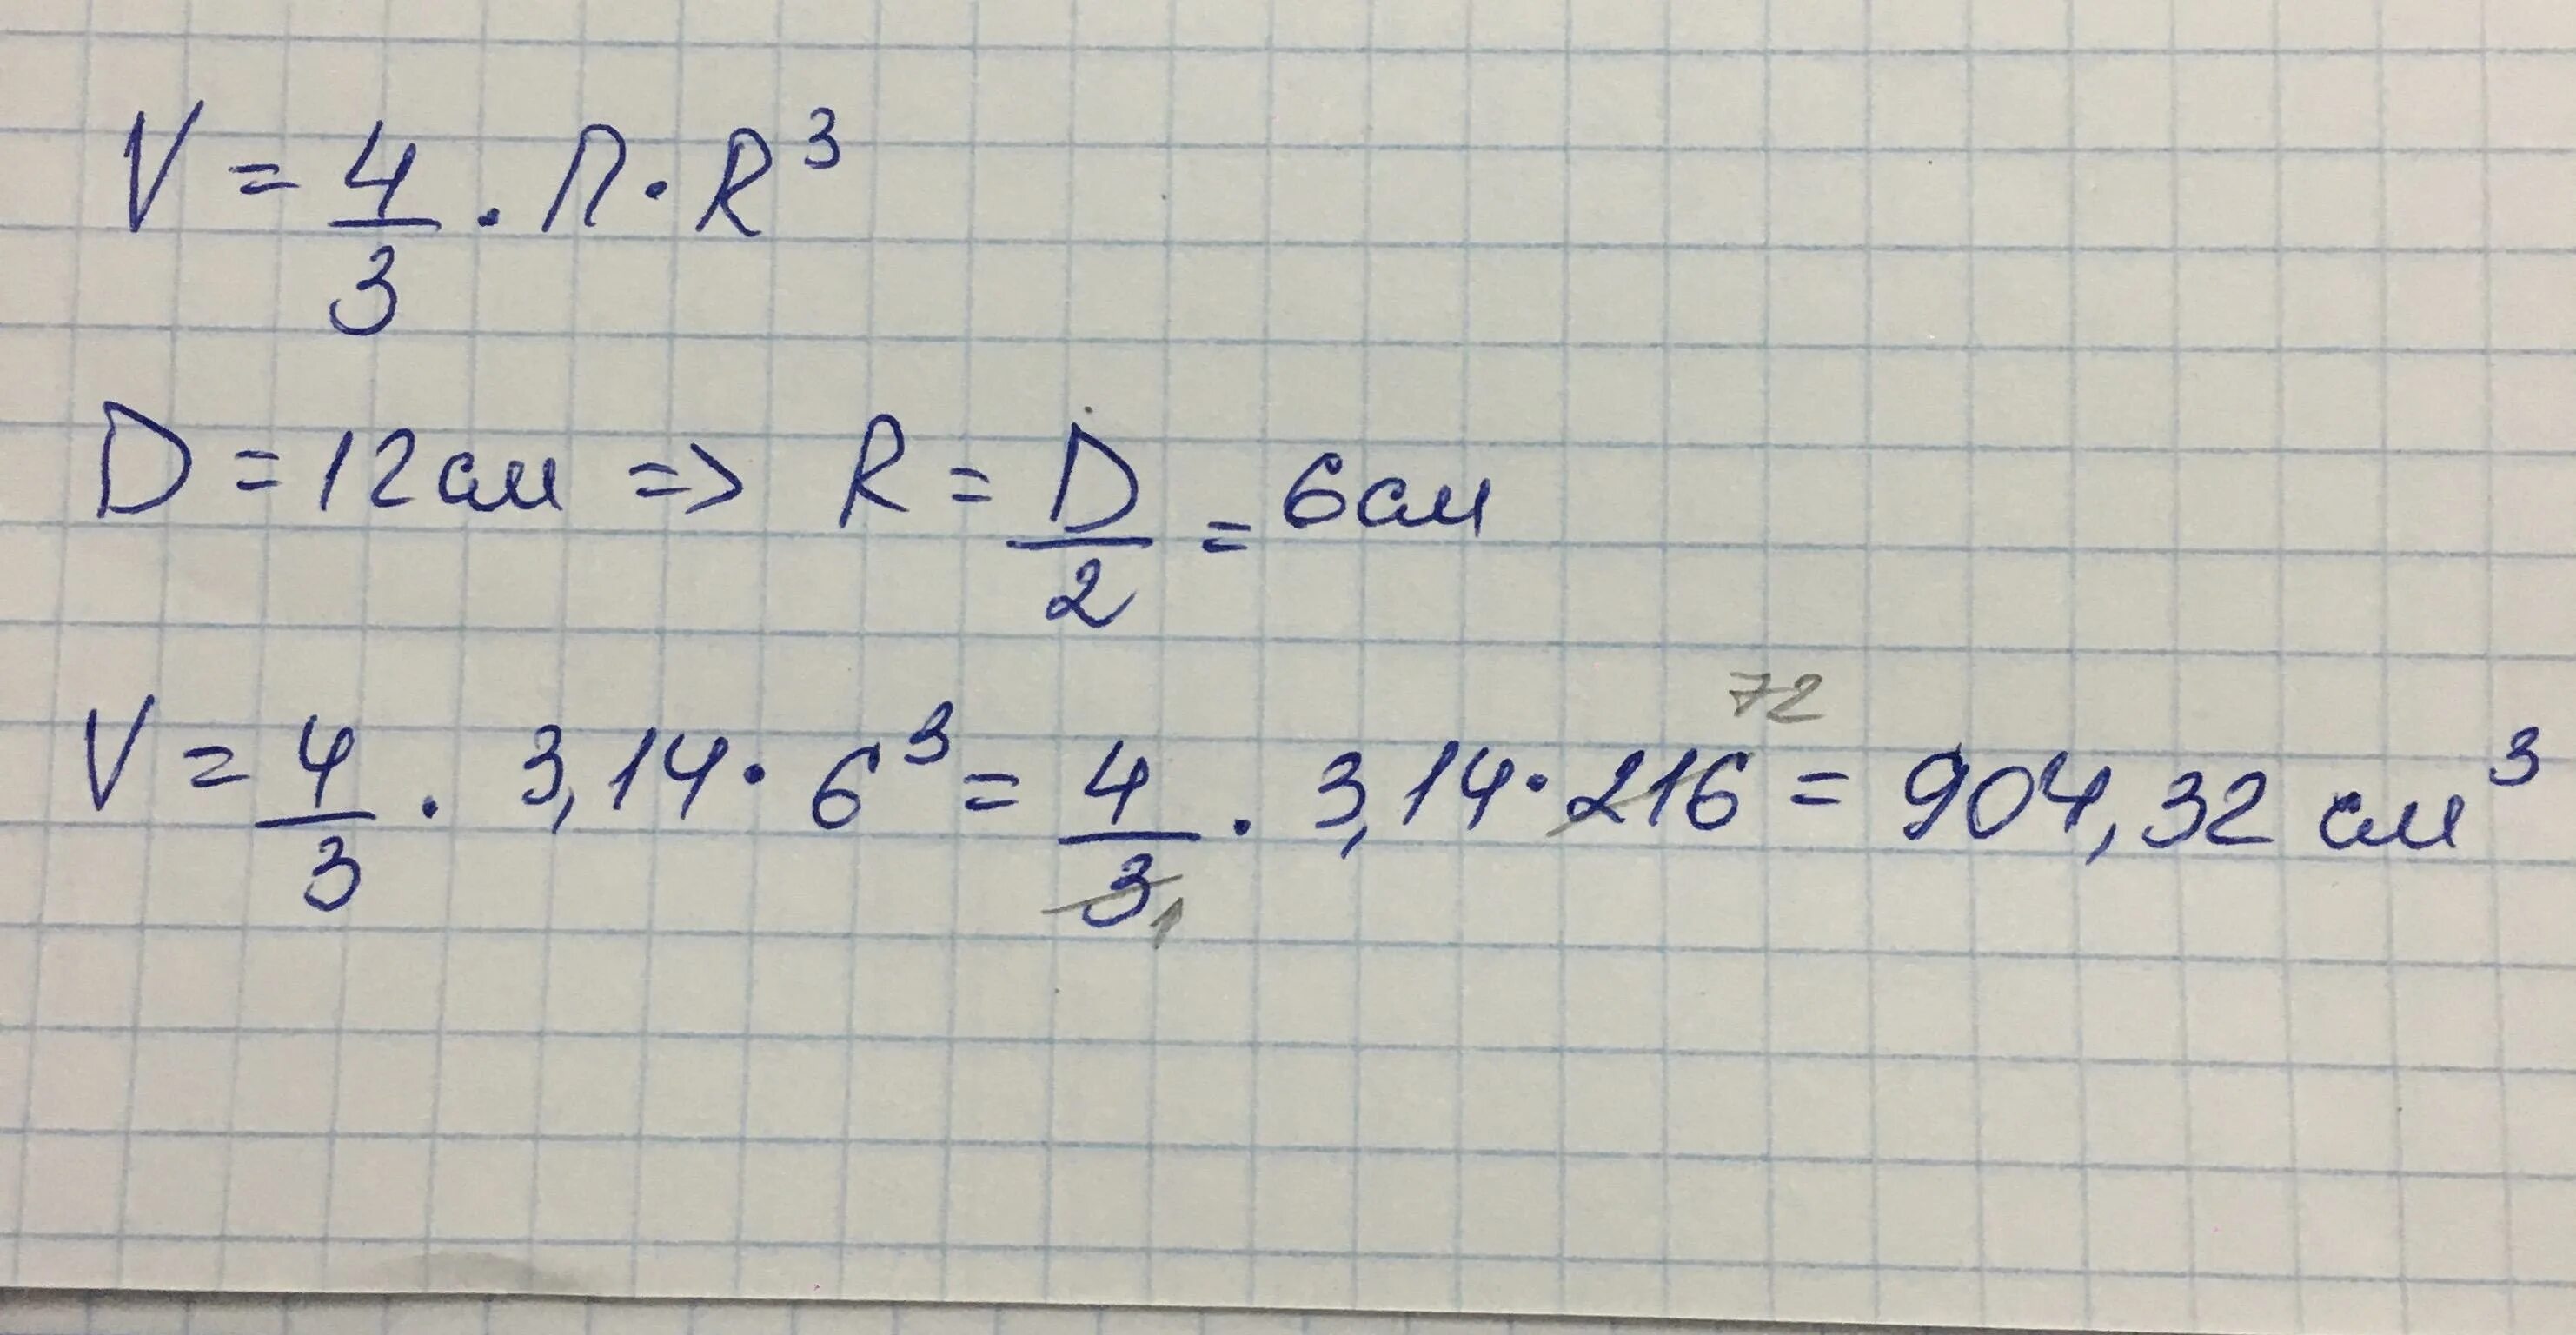 V = 4/3 · П · R³
D = 12 см => R = D/2 = 6 см
72
V = 4/3 · 3,14 · 6³ = 4/3 · 3,14 · 216 = 904,32 см³
1